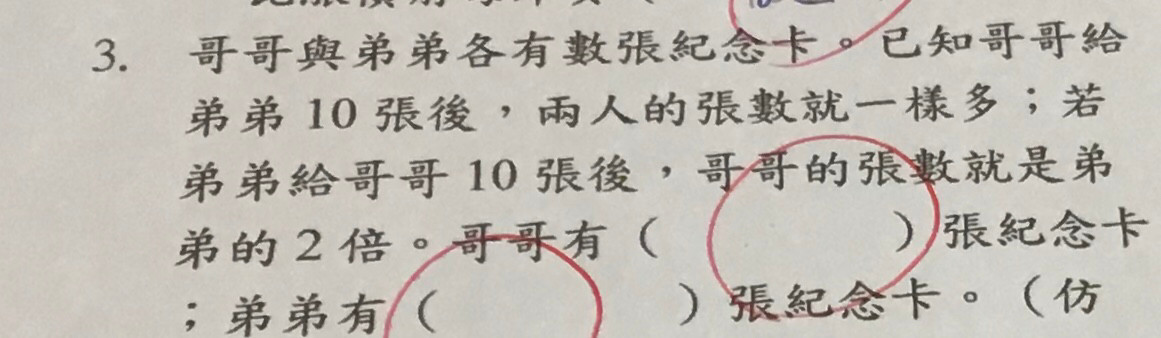 3. 哥哥與弟弟各有數張紀念卡。已知哥哥給
弟弟 10 張後，兩人的張數就一樣多；若
弟弟給哥哥 10 張後，哥哥的張數就是弟
弟的 2 倍。哥哥有（　　　）張紀念卡
；弟弟有（　　　）張紀念卡。（仿